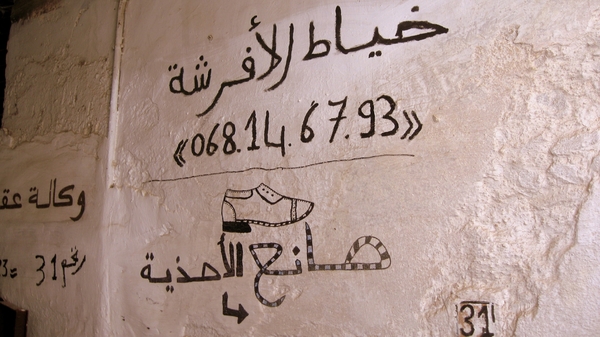 خياط الأفرشة
«068.14.67.93»
صانع الأحذية
وكالة عقا
رقم 31 =
31